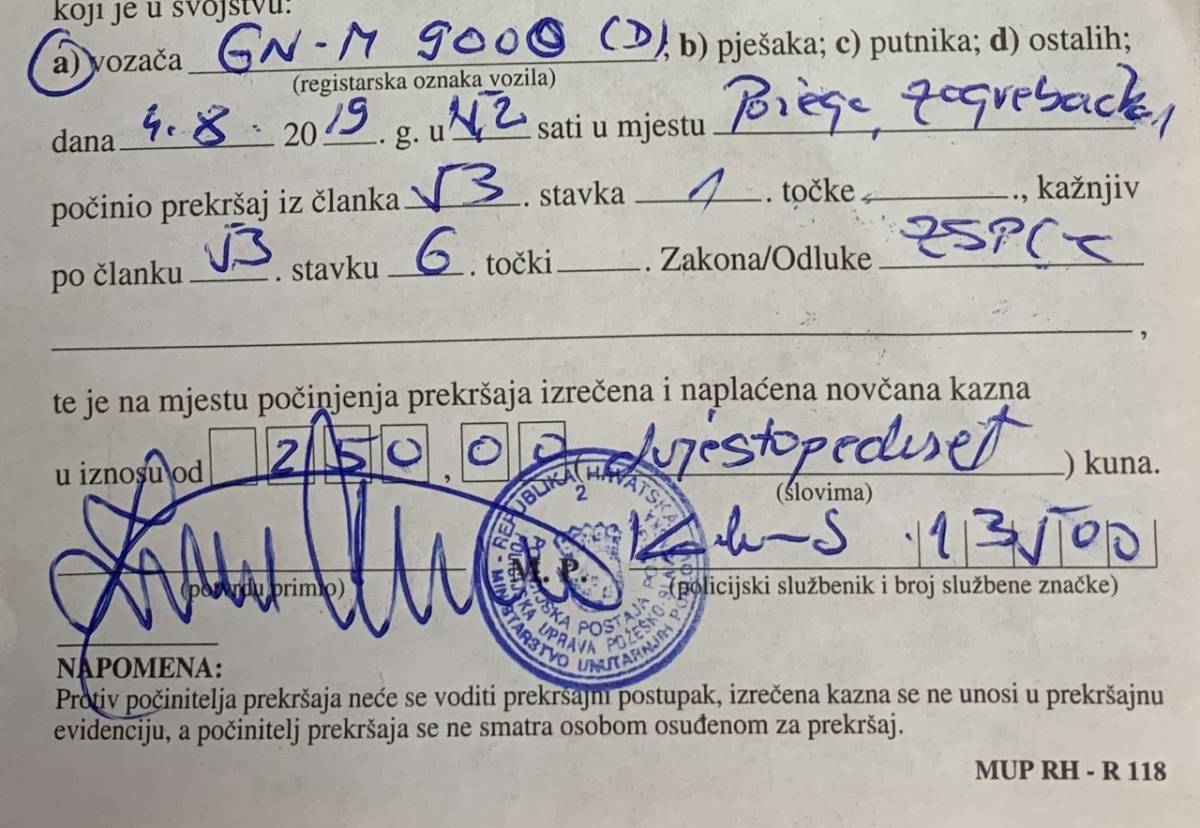 koji je u svojstvu:
a) vozača GN-M 9000 (D), b) pješaka; c) putnika; d) ostalih;
(registarska oznaka vozila)
dana 4.8. 2019. g. u sati u mjestu Požega, Zagrebačka,
počinio prekršaj iz članka 53. stavka 1. točke ., kažnjiv
po članku 53. stavku 6. točki . Zakona/Odluke ZSPC
,
te je na mjestu počinjenja prekršaja izrečena i naplaćena novčana kazna
u iznosu od 250,00 dvjestopedeset) kuna.
(slovima)
13500
(potvrdu primio) M. P. (policijski službenik i broj službene značke)
REPUBLIKA HRVATSKA
2
MINISTARSTVO UNUTARNJIH
UPRAVA POŽEŠKO-SLA
POSTAJA
NAPOMENA:
Protiv počinitelja prekršaja neće se voditi prekršajni postupak, izrečena kazna se ne unosi u prekršajnu
evidenciju, a počinitelj prekršaja se ne smatra osobom osuđenom za prekršaj.
MUP RH - R 118